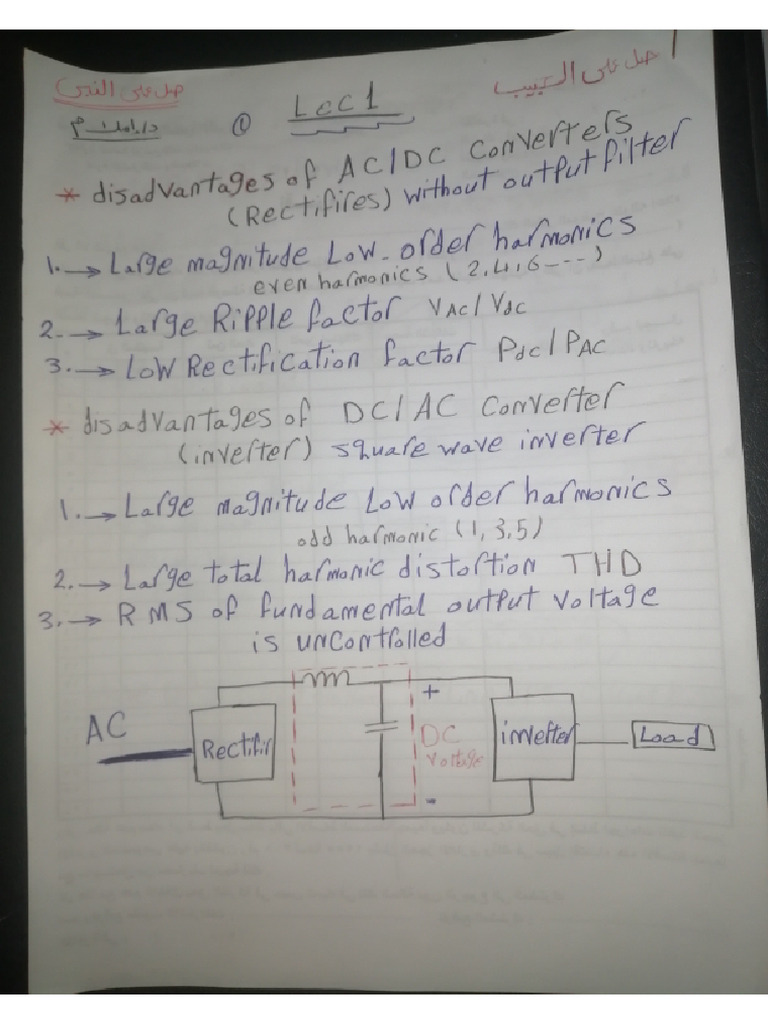 صل على النبي
صل على الحبيب
Lec 1
* disadvantages of AC/DC Converters
(Rectifires) without output filter
1. → Large magnitude Low-order harmonics
even harmonics (2,4,6---)
2. → Large Ripple factor VAC/Vdc
3. → Low Rectification factor Pdc/PAC
* disadvantages of DC/AC Converter
(inverter) square wave inverter
1. → Large magnitude Low order harmonics
odd harmonic (1,3,5)
2. → Large total harmonic distortion THD
3. → RMS of fundamental output voltage
is uncontrolled
AC
Rectifir
+
DC
voltage
-
inverter
Load